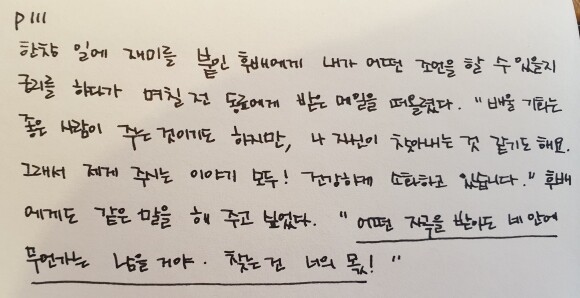 P 111
한창 일에 재미를 붙인 후배에게 내가 어떤 조언을 할 수 있을지
궁리를 하다가 며칠 전 동료에게 받은 메일을 떠올렸다. "배울 기회는
좋은 사람이 주는 것이기도 하지만, 나 자신이 찾아내는 것 같기도 해요.
그래서 제게 주시는 이야기 모두! 건강하게 소화하고 있습니다." 후배
에게도 같은 말을 해 주고 싶었다. "어떤 자극을 받아도 네 안에
무언가는 남을거야. 찾는 건 너의 몫!"